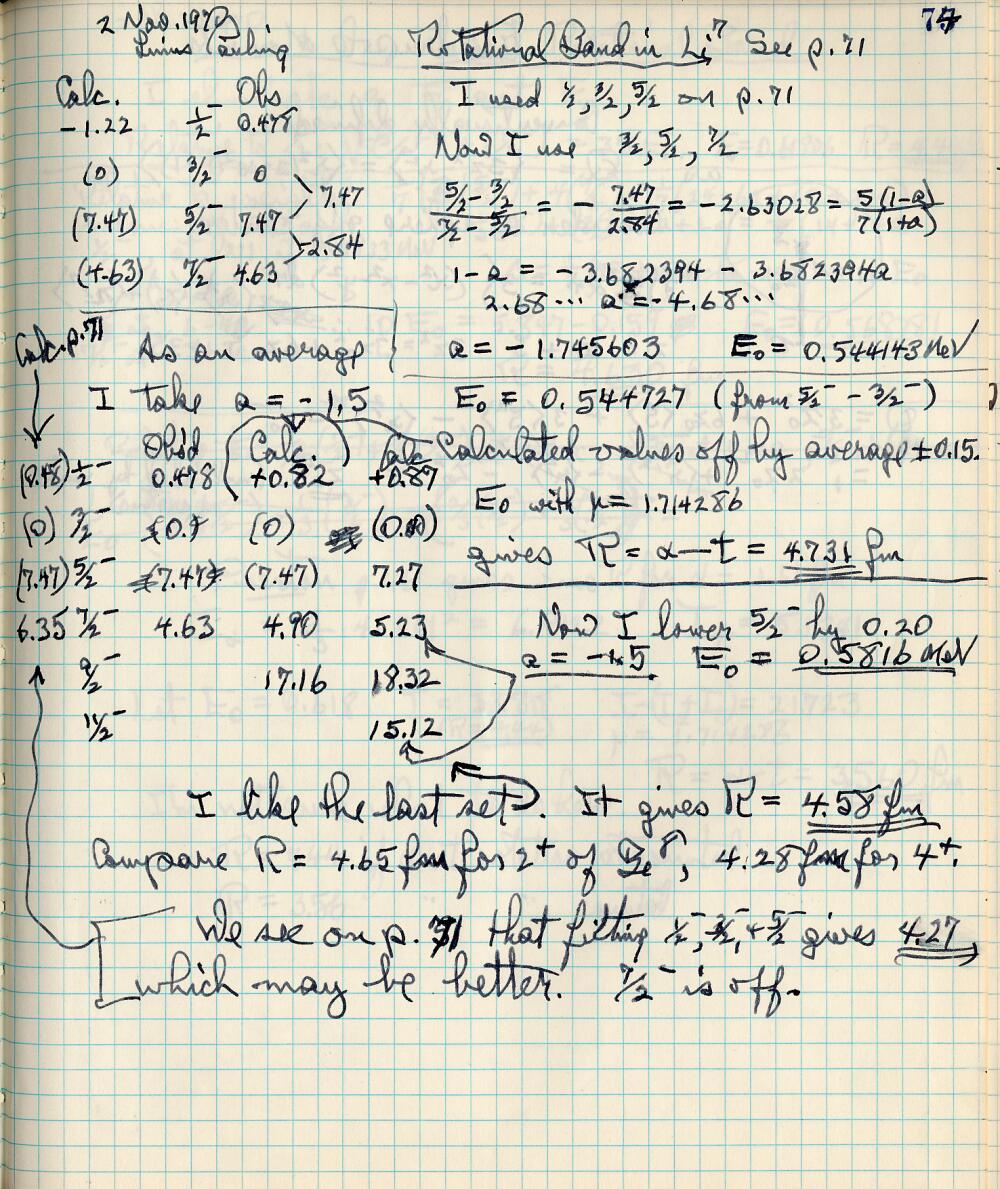 2 Nov. 197
Linus Pauling
Rotational Band in Li⁷ See p. 71
Calc. Obs
-1.22 1/2⁻ 0.478
(0) 3/2⁻ 0
(7.47) 5/2⁻ 7.47
(4.63) 7/2⁻ 4.63
> 7.47
> -2.84
I used 1/2, 3/2, 5/2 on p. 71
Now I use 3/2, 5/2, 7/2
(5/2 - 3/2)/(7/2 - 5/2) = - 7.47/2.84 = -2.63028 = 5(1-a)/7(1+a)
1-a = -3.682394 - 3.682394a
2.68... a = -4.68...
a = -1.745603 E₀ = 0.544143 MeV
Calc. p. 71
As an average
I take a = -1.5
E₀ = 0.544727 (from 5/2⁻ - 3/2⁻)
Obs'd Calc. Calc
(0.48) 1/2⁻ 0.478 +0.82 +0.87
(0) 3/2⁻ (0.) (0) (0.00)
(7.47) 5/2⁻ (7.47) (7.47) 7.27
6.35 7/2⁻ 4.63 4.90 5.23
9/2⁻ 17.16 18.32
11/2⁻ 15.12
Calculated values off by average ±0.15.
E₀ with μ = 1.714286
gives R = α-t = 4.731 fm
Now I lower 5/2⁻ by 0.20
a = -1.5 E₀ = 0.5816 MeV
I like the last set. It gives R = 4.58 fm
Compare R = 4.65 fm for 2⁺ of Be⁸, 4.28 fm for 4⁺.
We see on p. 71 that fitting 1/2⁻, 3/2⁻, + 5/2⁻ gives 4.27
which may be better. 7/2⁻ is off.